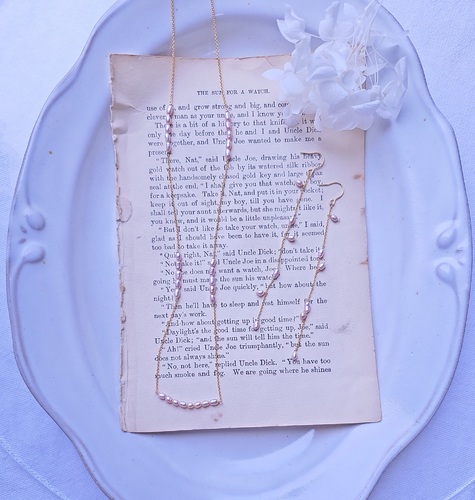 THE SUN FOR A WATCH.
use of, and grow strong and big, and
clever man as your un and I know
There is a bit of a history to that knif it w
only day before the he and I and Uncle Dick
were together, and Uncle Joe wanted to make me a
present
"There, Nat," said Uncle Joe, drawing his
gold watch out of the fob by its watered silk ribbon
with the handsomely chased gold key and large
seal at the end, "I shall give you that watch
for a keepsake. Take it, Nat, and put it in your pocket;
keep it out of sight, my boy, till you have gone. I
shall tell your aunt afterwards, but she might like it,
you know, and it would be a little unpleasant
"But I don't like to take your watch, uncle," I said,
glad as I should have been to have it, for it seemed
too bad to take it away.
"Quite right, Nat," said Uncle Dick; "don't take it."
"Not take it!" said Uncle Joe in a disappointed tone
"No; he does not want a watch, Joe. Where he
going he must make the sun
"Yes," said Uncle Joe quickly, "but how about the
night?
"Then he'll have to sleep and rest himself for the
next day's work.
"And how about getting up in good time?"
"Daylight's the good time for getting up, Joe," said
Uncle Dick; "and the sun will tell him the time."
"Ah!" cried Uncle Joe triumphantly, "but the sun
does not always shine."
"No, not here," replied Uncle Dick. "You have too
much smoke and fog. We are going where he shines